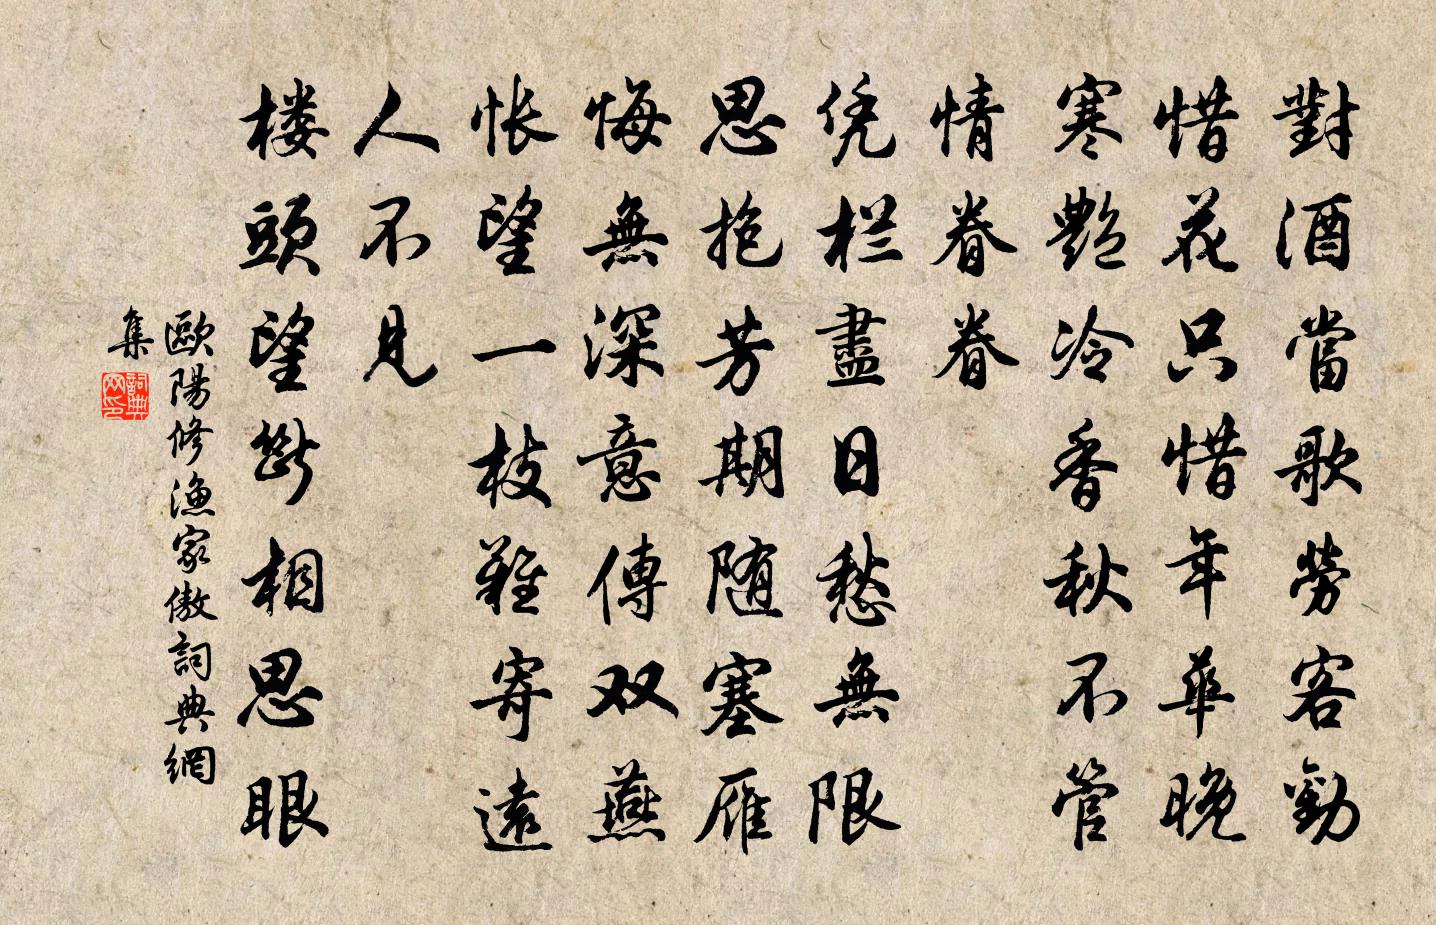 對酒當歌勞客勸
惜花只惜年華晚
寒艷冷香秋不管
情眷眷
凭栏盡日愁無限
思抱芳期随塞雁
悔無深意傳双燕
悵望一枝難寄遠
人不見
楼頭望斷相思眼
歐陽修漁家傲詞典網
集
詞典网印